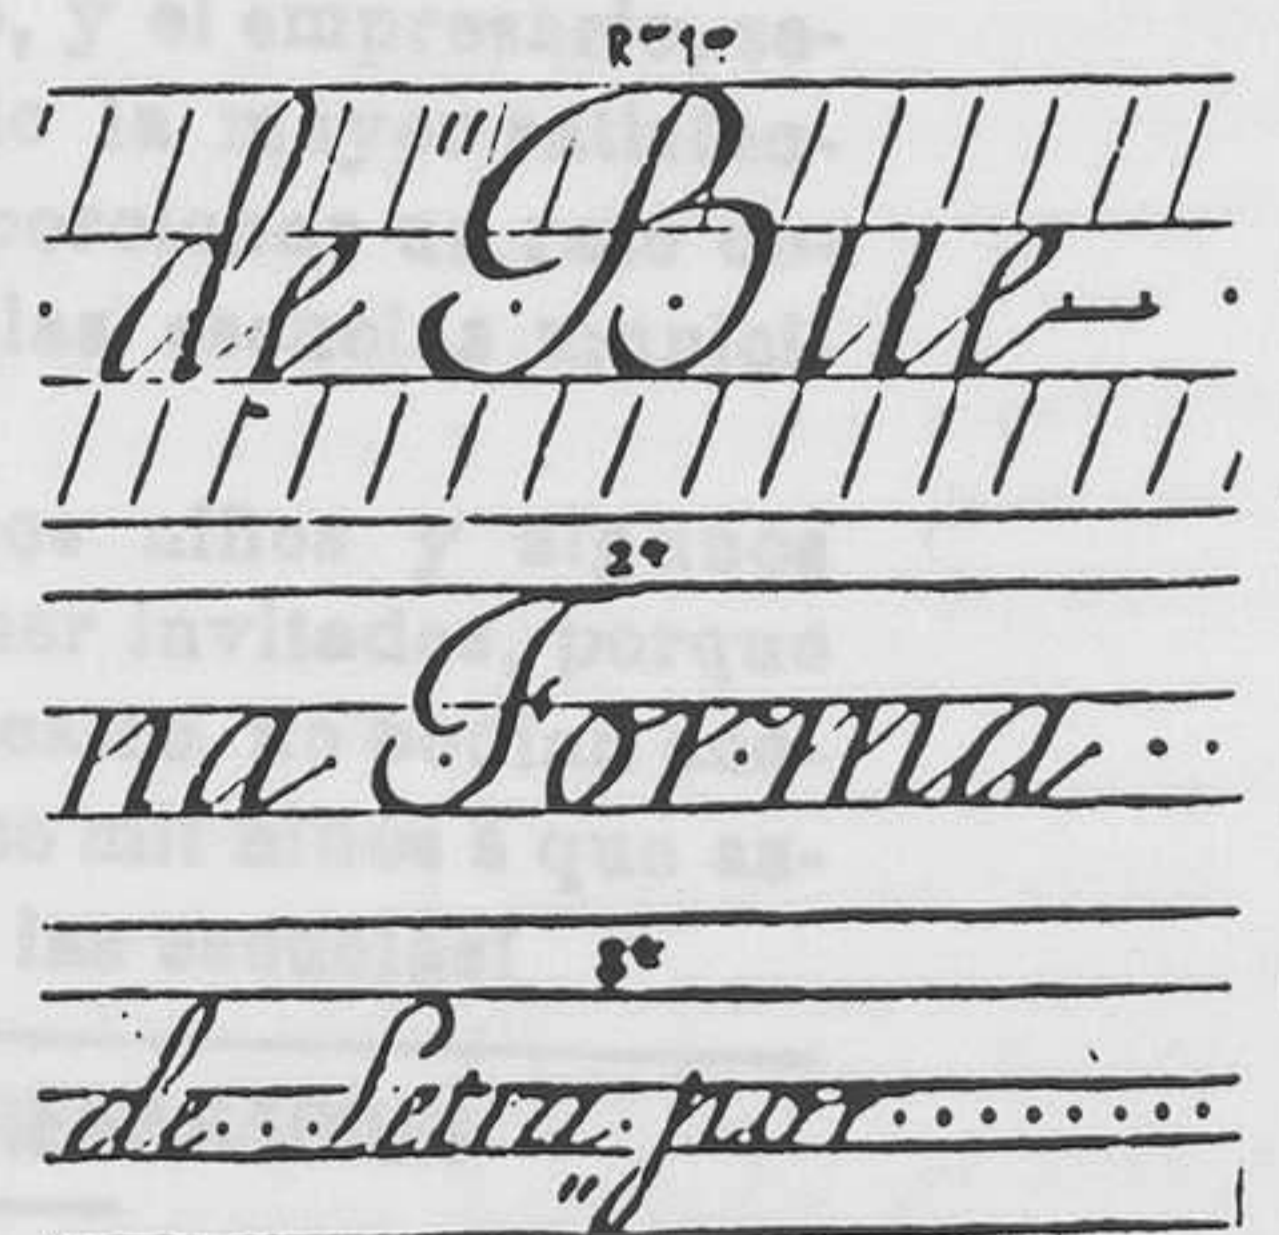 Rᵃ 1ᵃ
de Bue-
2ᵃ
na Forma
3ᵃ
de Letra por